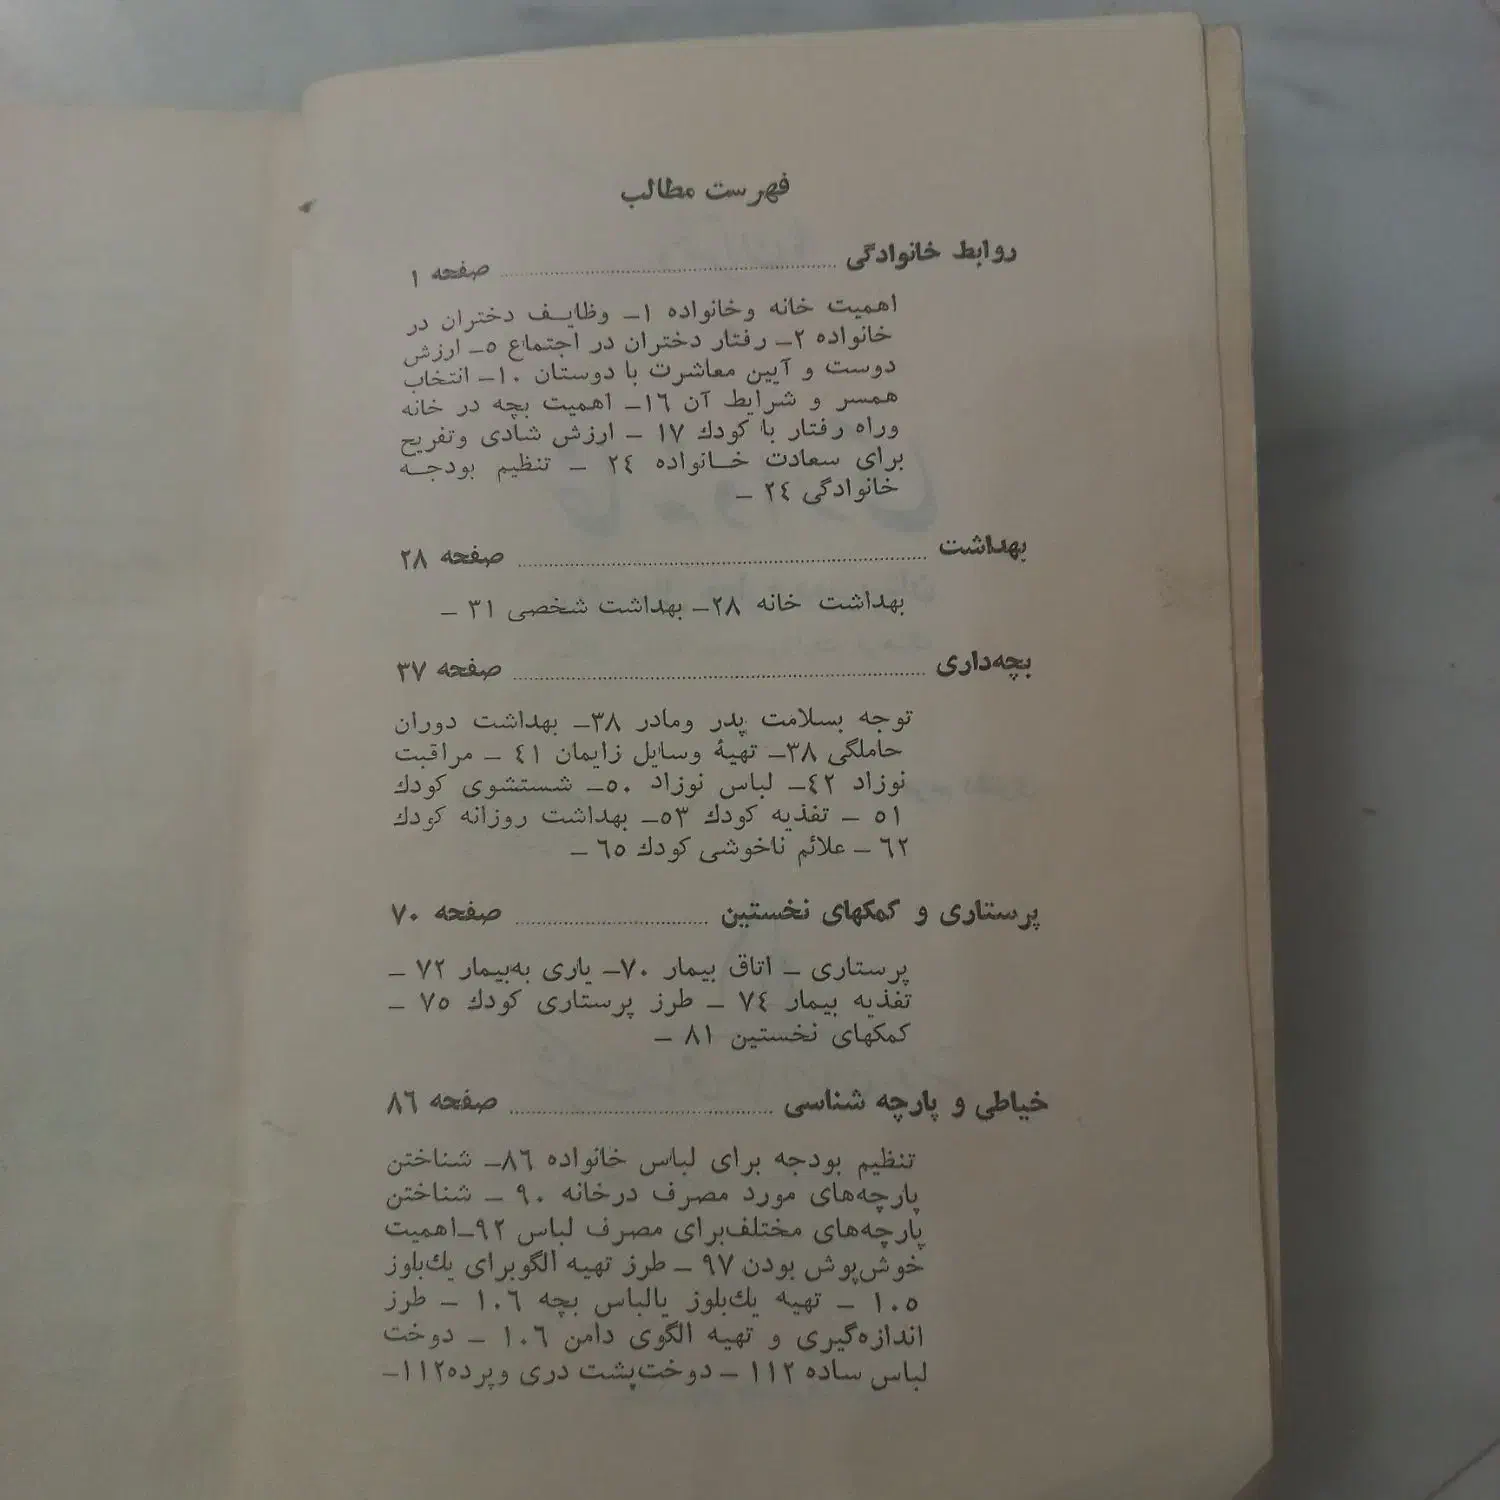 فهرست مطالب
روابط خانوادگی ........ صفحه ۱
اهمیت خانه وخانواده ۱ــ وظایــف دختران در
خانواده ۲ــ رفتار دختران در اجتماع ٥ــ ارزش
دوست و آیین معاشرت با دوستان ۱۰ــ انتخاب
همسر و شرایط آن ۱٦ــ اهمیت بچه در خانه
وراه رفتار با کودك ۱۷ ــ ارزش شادی وتفریح
برای سعادت خــانواده ۲٤ ــ تنظیم بودجــه
خانوادگی ۲٤ ــ
بهداشت ........ صفحه ۲۸
بهداشت خانه ۲۸ــ بهداشت شخصی ۳۱ ــ
بچه‌داری ........ صفحه ۳۷
توجه بسلامت پدر ومادر ۳۸ــ بهداشت دوران
حاملگی ۳۸ــ تهیهٔ وسایل زایمان ٤۱ ــ مراقبت
نوزاد ٤۲ــ لباس نوزاد ٥۰ــ شستشوی کودك
٥۱ ــ تغذیه کودك ٥۳ــ بهداشت روزانه کودك
٦۲ ــ علائم ناخوشی کودك ٦٥ ــ
پرستاری و کمکهای نخستین ........ صفحه ۷۰
پرستاری ــ اتاق بیمار ۷۰ــ یاری به‌بیمار ۷۲ ــ
تغذیه بیمار ۷٤ ــ طرز پرستاری کودك ۷٥ ــ
کمکهای نخستین ۸۱ ــ
خیاطی و پارچه شناسی ........ صفحه ۸٦
تنظیم بودجه برای لباس خانواده ۸٦ــ شناختن
پارچه‌های مورد مصرف درخانه ۹۰ ــ شناختن
پارچه‌های مختلف‌برای مصرف لباس ۹۲ــاهمیت
خوش‌پوش بودن ۹۷ ــ طرز تهیه الگوبرای یك‌بلوز
۱۰٥ ــ تهیه یك‌بلوز یالباس بچه ۱۰٦ ــ طرز
اندازه‌گیری و تهیه الگوی دامن ۱۰٦ ــ دوخت
لباس ساده ۱۱۲ ــ دوخت‌پشت دری وپرده۱۱۲ــ